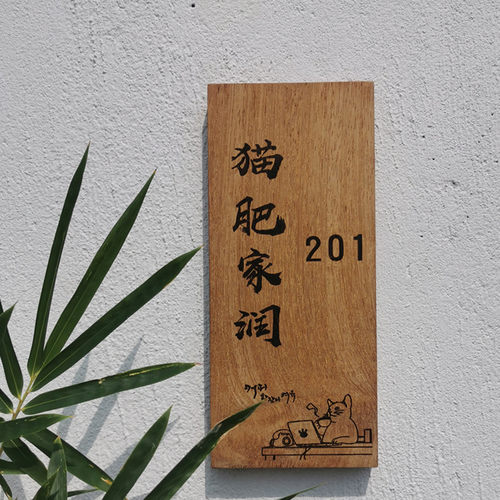 猫肥家润
201